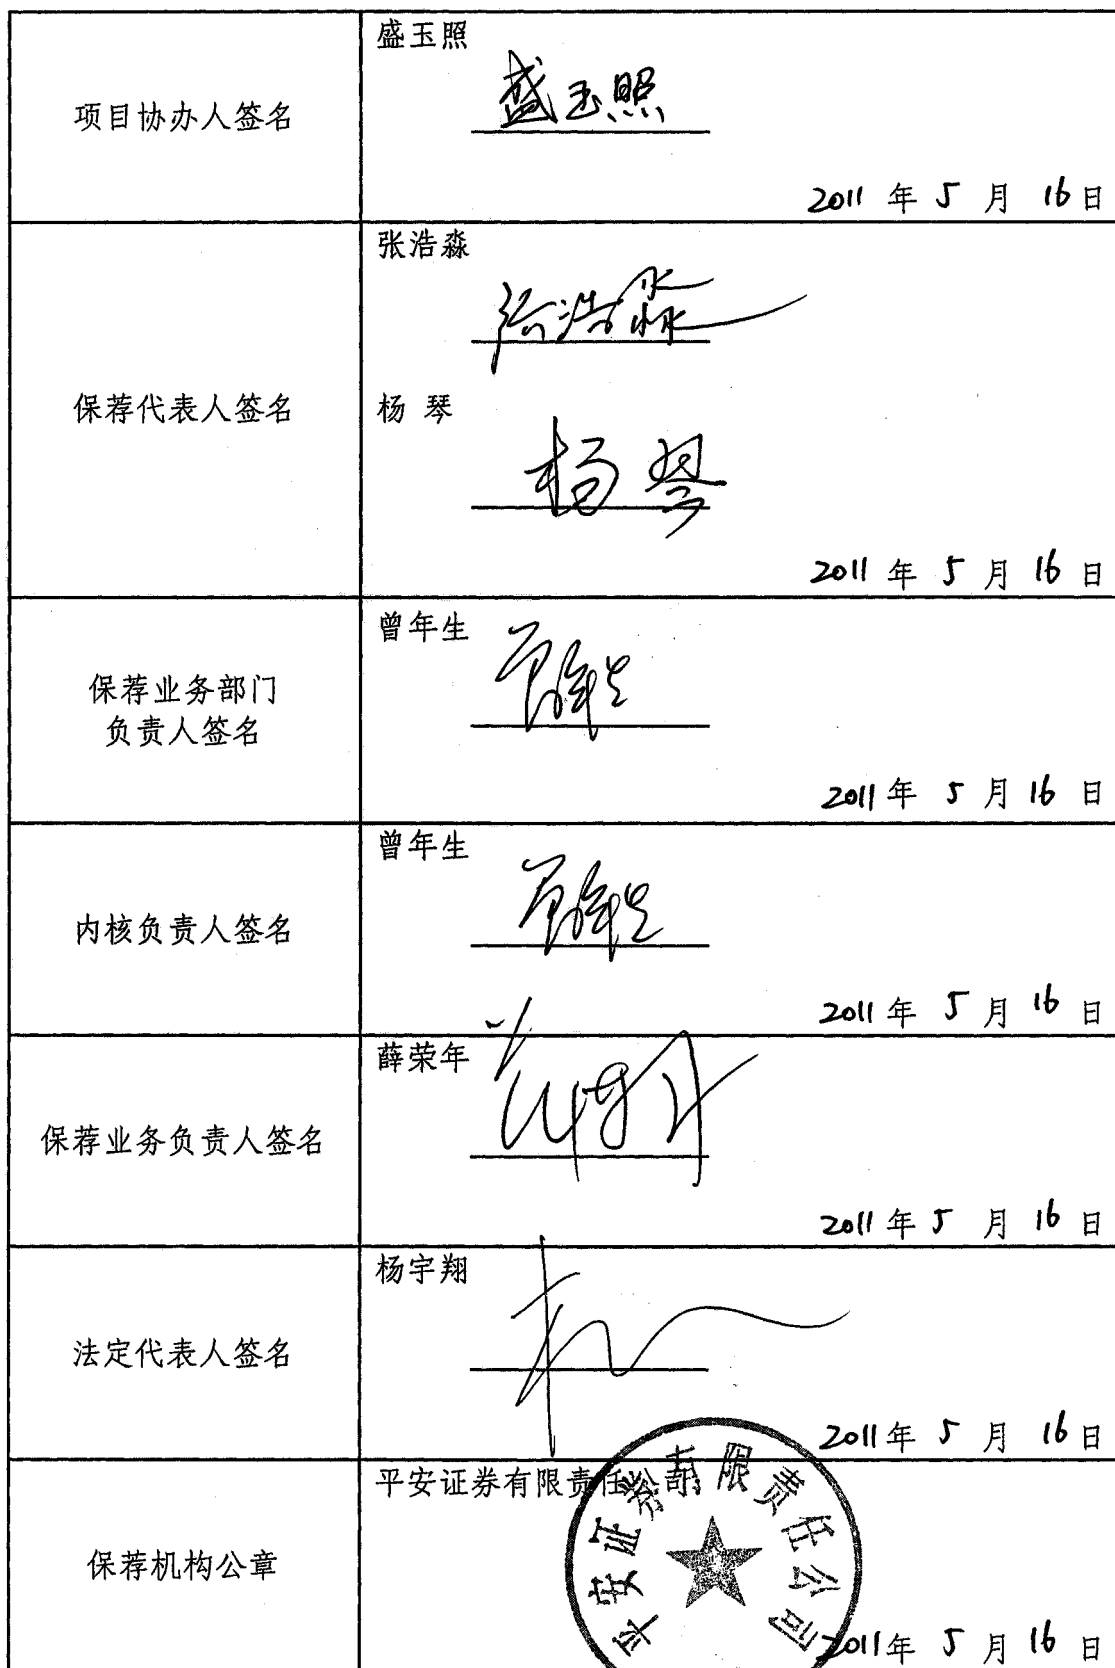 项目协办人签名
盛玉照
盛玉照
2011 年 5 月 16 日
保荐代表人签名
张浩淼
张浩淼
杨 琴
杨琴
2011 年 5 月 16 日
保荐业务部门
负责人签名
曾年生
曾年生
2011 年 5 月 16 日
内核负责人签名
曾年生
曾年生
2011 年 5 月 16 日
保荐业务负责人签名
薛荣年
2011 年 5 月 16 日
法定代表人签名
杨宇翔
2011 年 5 月 16 日
保荐机构公章
平安证券有限责任公司
平安证券有限责任公司
2011 年 5 月 16 日